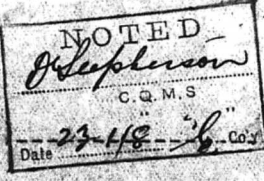 NOTED
J Stephenson
C.Q.M.S
Date 23-4-18 "C" Coy